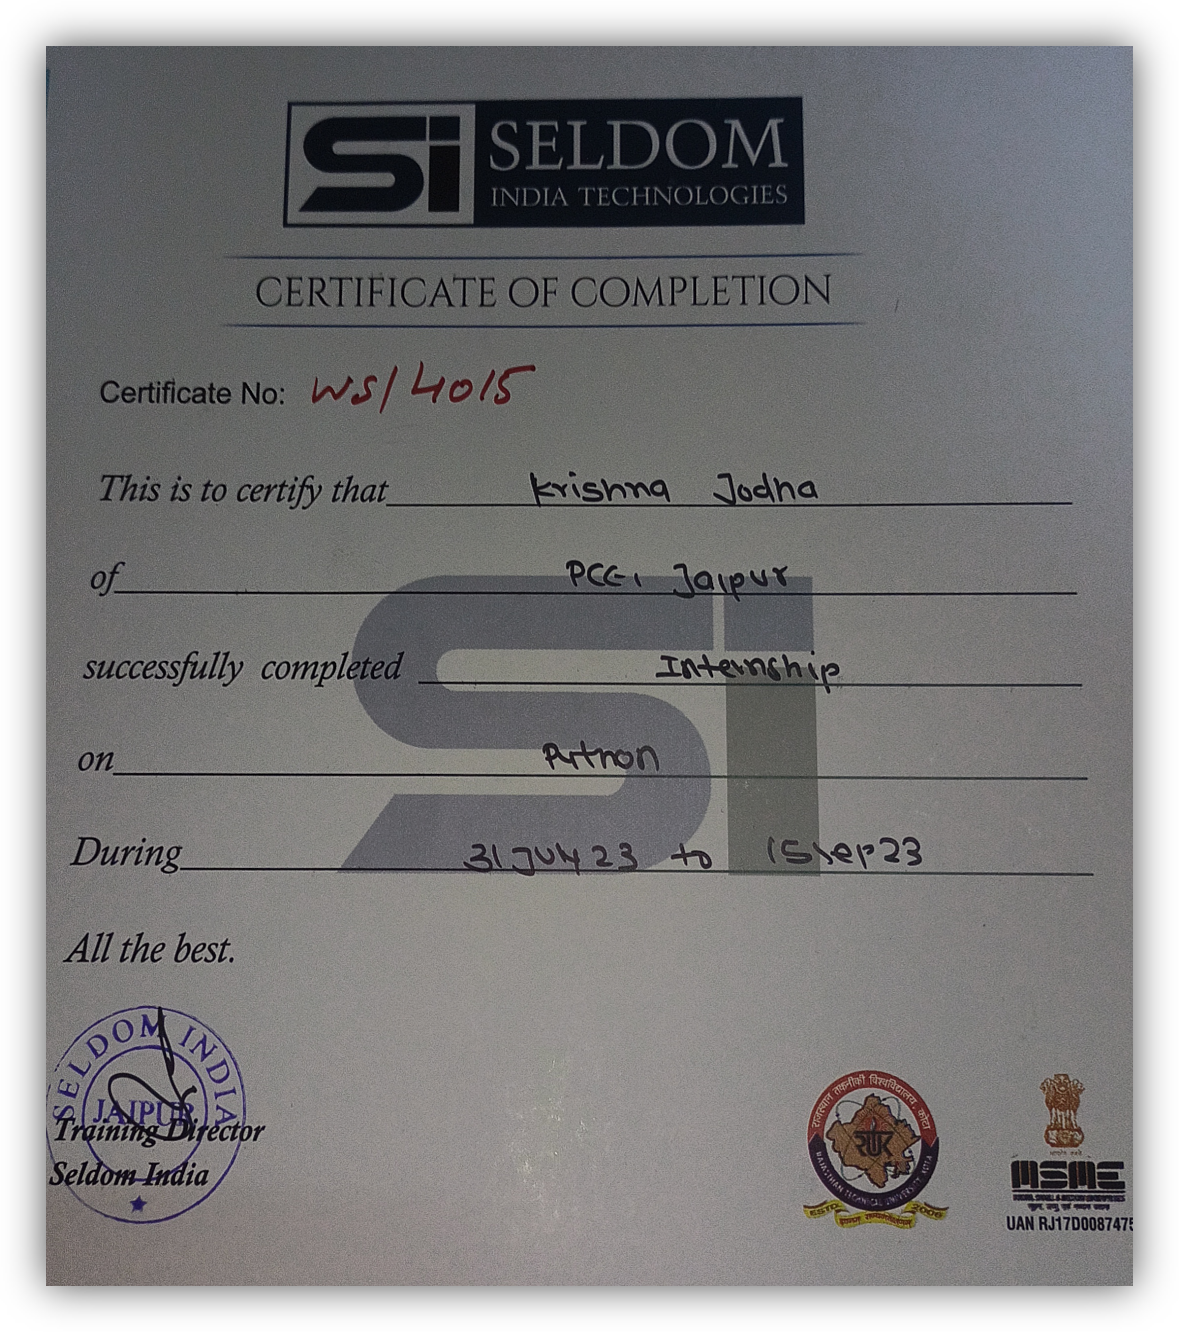 Si SELDOM
INDIA TECHNOLOGIES
CERTIFICATE OF COMPLETION
Certificate No: WS/4015
This is to certify that Krishna Jodha
of PCE, Jaipur
successfully completed Internship
on Python
During 31 July 23 to 15 Sep 23
All the best.
SELDOM INDIA
JAIPUR
Training Director
Seldom India
राजस्थान तकनीकी विश्वविद्यालय, कोटा
RTU
RAJASTHAN TECHNICAL UNIVERSITY, KOTA
ESTD. 2006
MSME
MICRO, SMALL & MEDIUM ENTERPRISES
UAN RJ17D0087475